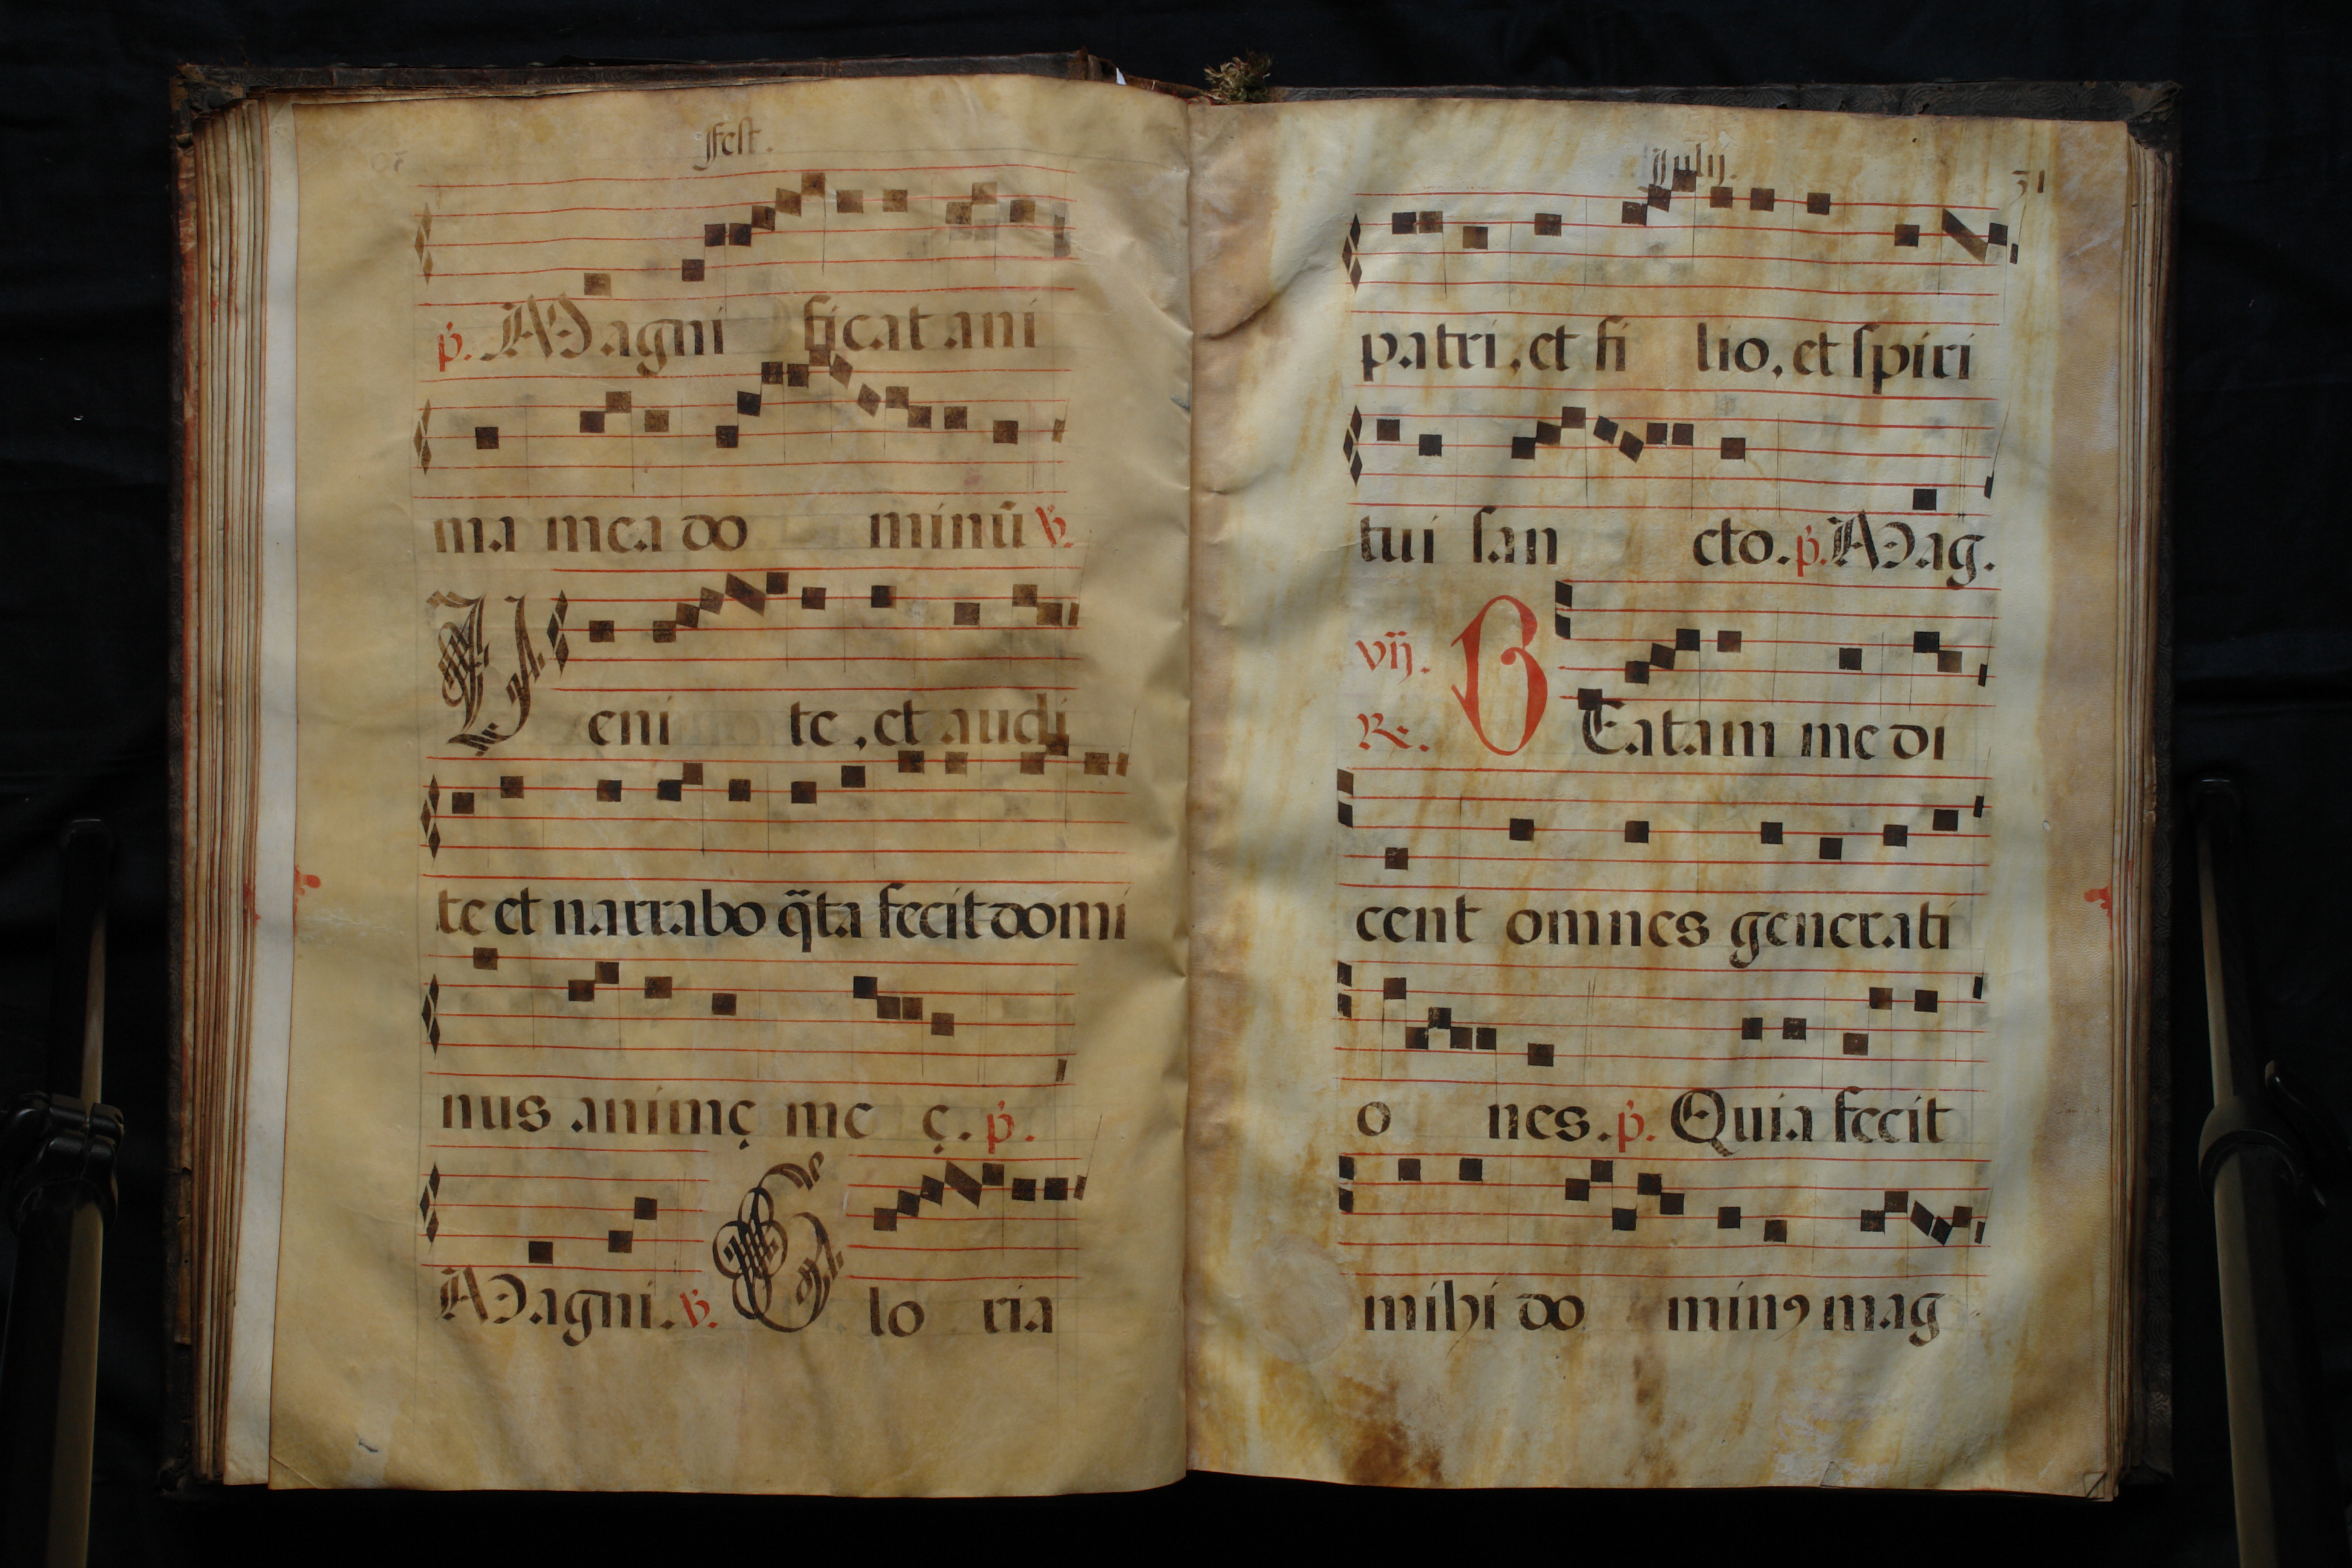 Fest.
p. Magni ficat ani
ma mea do minū v.
Veni te, et audi
te et narrabo q̄ta fecit domi
nus animę me ę. p.
Magni. v. Glo ria
Julij.
31
patri, et fi lio, et spiri
tui san cto. p. Mag.
vij.
R. BEatam me di
cent omnes generati
o nes. p. Quia fecit
mihi do minꝯ mag